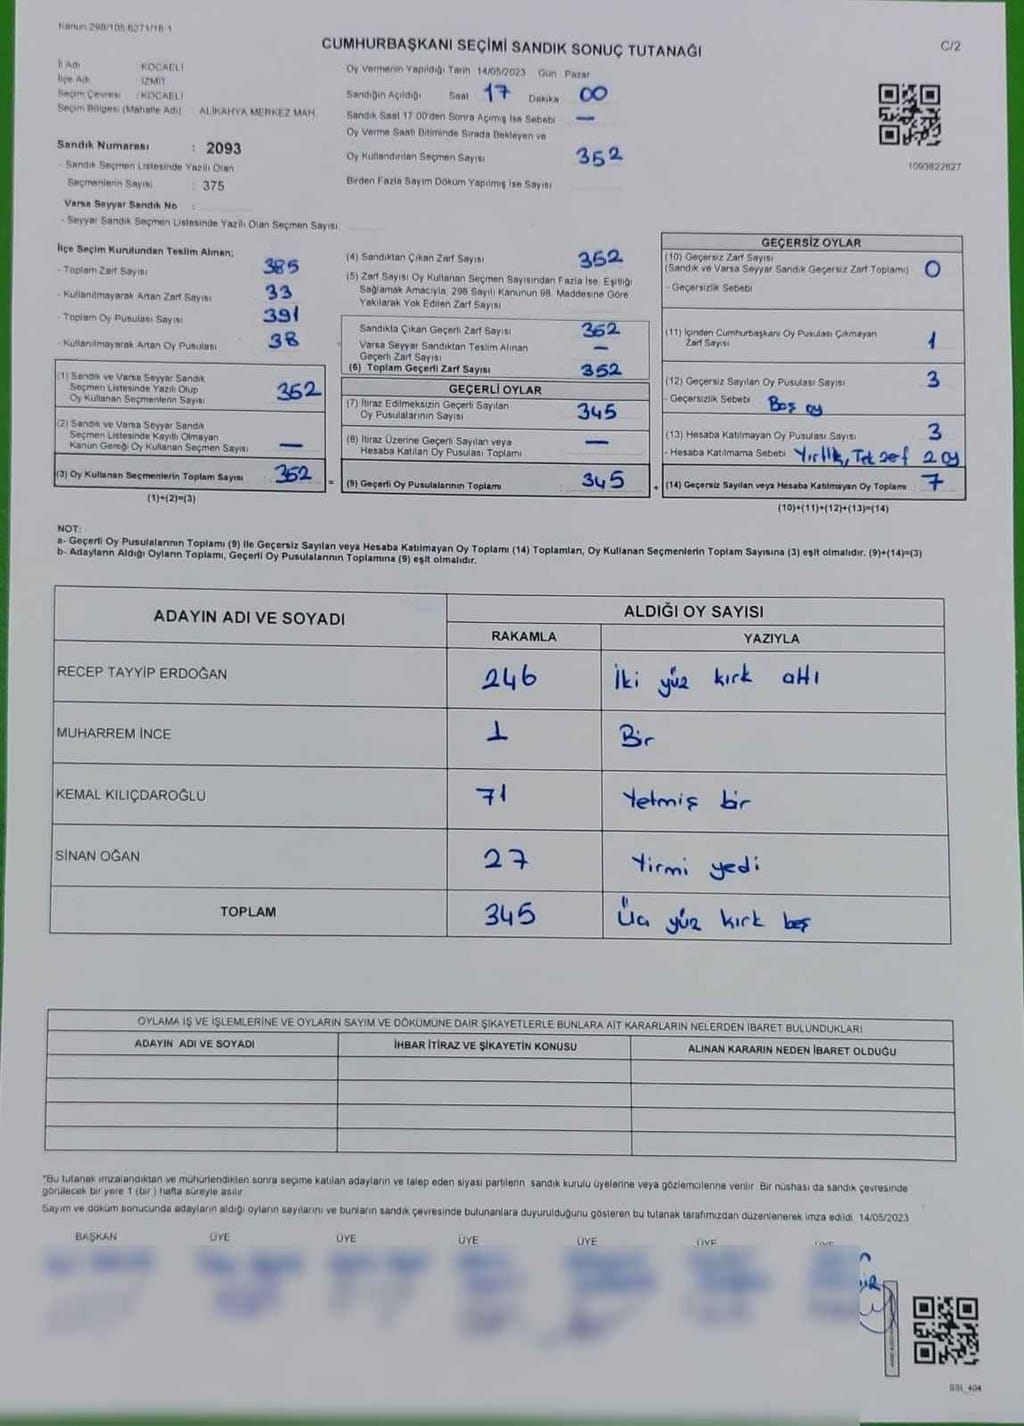 Kanun 298/105-6271/18-1
CUMHURBAŞKANI SEÇİMİ SANDIK SONUÇ TUTANAĞI
C/2
İl Adı KOCAELİ
İlçe Adı İZMİT
Seçim Çevresi : KOCAELİ
Seçim Bölgesi (Mahalle Adı) ALİKAHYA MERKEZ MAH.
Sandık Numarası : 2093
- Sandık Seçmen Listesinde Yazılı Olan
Seçmenlerin Sayısı : 375
Varsa Seyyar Sandık No :
- Seyyar Sandık Seçmen Listesinde Yazılı Olan Seçmen Sayısı:
Oy Vermenin Yapıldığı Tarih 14/05/2023 Gün Pazar
Sandığın Açıldığı Saat 17 Dakika 00
Sandık Saat 17.00'den Sonra Açımış İse Sebebi —
Oy Verme Saati Bitiminde Sırada Bekleyen ve
Oy Kullandırılan Seçmen Sayısı 352
Birden Fazla Sayım Döküm Yapılmış İse Sayısı
1093822827
İlçe Seçim Kurulundan Teslim Alınan;
- Toplam Zarf Sayısı 385
- Kullanılmayarak Artan Zarf Sayısı 33
- Toplam Oy Pusulası Sayısı 391
- Kullanılmayarak Artan Oy Pusulası 38
(1) Sandık ve Varsa Seyyar Sandık
Seçmen Listesinde Yazılı Olup
Oy Kullanan Seçmenlerin Sayısı 352
(2) Sandık ve Varsa Seyyar Sandık
Seçmen Listesinde Kayıtlı Olmayan
Kanun Gereği Oy Kullanan Seçmen Sayısı —
(3) Oy Kullanan Seçmenlerin Toplam Sayısı 352 =
(1)+(2)=(3)
(4) Sandıktan Çıkan Zarf Sayısı 352
(5) Zarf Sayısı Oy Kullanan Seçmen Sayısından Fazla İse, Eşitliği
Sağlamak Amacıyla, 298 Sayılı Kanunun 98. Maddesine Göre
Yakılarak Yok Edilen Zarf Sayısı
Sandıkla Çıkan Geçerli Zarf Sayısı 352
Varsa Seyyar Sandıktan Teslim Alınan
Geçerli Zarf Sayısı —
(6) Toplam Geçerli Zarf Sayısı 352
GEÇERLİ OYLAR
(7) İtiraz Edilmeksizin Geçerli Sayılan
Oy Pusulalarının Sayısı 345
(8) İtiraz Üzerine Geçerli Sayılan veya
Hesaba Katılan Oy Pusulası Toplamı —
(9) Geçerli Oy Pusulalarının Toplamı 345 +
GEÇERSİZ OYLAR
(10) Geçersiz Zarf Sayısı
(Sandık ve Varsa Seyyar Sandık Geçersiz Zarf Toplamı) 0
- Geçersizlik Sebebi
(11) İçinden Cumhurbaşkanı Oy Pusulası Çıkmayan
Zarf Sayısı 1
(12) Geçersiz Sayılan Oy Pusulası Sayısı 3
- Geçersizlik Sebebi Boş oy
(13) Hesaba Katılmayan Oy Pusulası Sayısı 3
- Hesaba Katılmama Sebebi Yırtık, Tek zarf 2 oy
(14) Geçersiz Sayılan veya Hesaba Katılmayan Oy Toplamı 7
(10)+(11)+(12)+(13)=(14)
NOT:
a- Geçerli Oy Pusulalarının Toplamı (9) ile Geçersiz Sayılan veya Hesaba Katılmayan Oy Toplamı (14) Toplamları, Oy Kullanan Seçmenlerin Toplam Sayısına (3) eşit olmalıdır. (9)+(14)=(3)
b- Adayların Aldığı Oyların Toplamı, Geçerli Oy Pusulalarının Toplamına (9) eşit olmalıdır.
ADAYIN ADI VE SOYADI
ALDIĞI OY SAYISI
RAKAMLA YAZIYLA
RECEP TAYYİP ERDOĞAN 246 İki yüz kırk altı
MUHARREM İNCE 1 Bir
KEMAL KILIÇDAROĞLU 71 Yetmiş bir
SİNAN OĞAN 27 Yirmi yedi
TOPLAM 345 Üç yüz kırk beş
OYLAMA İŞ VE İŞLEMLERİNE VE OYLARIN SAYIM VE DÖKÜMÜNE DAİR ŞİKAYETLERLE BUNLARA AİT KARARLARIN NELERDEN İBARET BULUNDUKLARI
ADAYIN ADI VE SOYADI İHBAR İTİRAZ VE ŞİKAYETİN KONUSU ALINAN KARARIN NEDEN İBARET OLDUĞU
*Bu tutanak imzalandıktan ve mühürlendikten sonra seçime katılan adayların ve talep eden siyasi partilerin sandık kurulu üyelerine veya gözlemcilerine verilir. Bir nüshası da sandık çevresinde
görülecek bir yere 1 (bir) hafta süreyle asılır
Sayım ve döküm sonucunda adayların aldığı oyların sayılarını ve bunların sandık çevresinde bulunanlara duyurulduğunu gösteren bu tutanak tarafımızdan düzenlenerek imza edildi. 14/05/2023
BAŞKAN ÜYE ÜYE ÜYE ÜYE ÜYE ÜYE
SSI_404